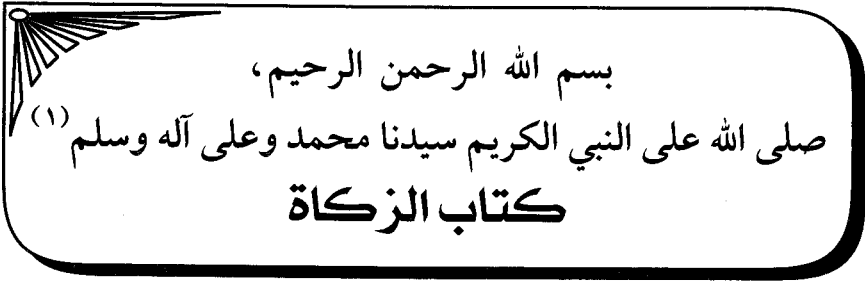 بسم الله الرحمن الرحيم،
صلى الله على النبي الكريم سيدنا محمد وعلى آله وسلم(١)
كتاب الزكاة